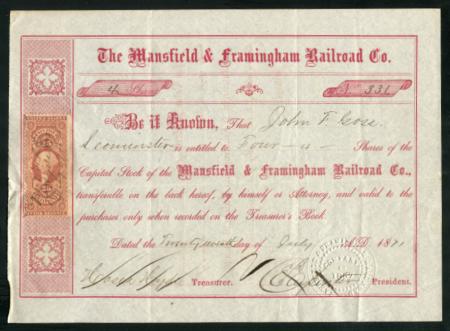 The Mansfield & Framingham Railroad Co.
4 331
Be it Known, That John F. Gose
Leominster is entitled to Four Shares of the
Capital Stock of the Mansfield & Framingham Railroad Co.,
transferable on the back hereof, by himself or Attorney, and valid to the
purchasers only when recorded on the Treasurer's Book.
Dated the day of July A.D. 1871
Treasurer. President.